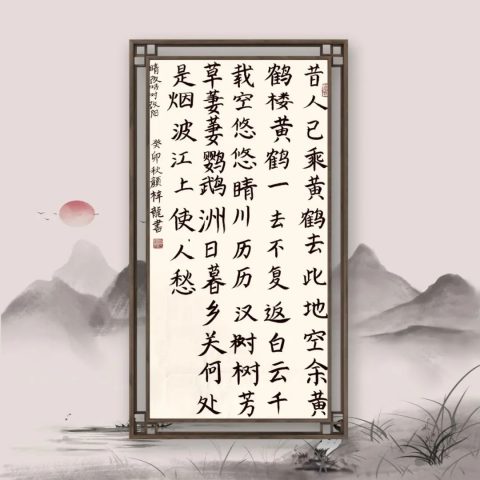 昔人已乘黄鹤去此地空余黄
鹤楼黄鹤一去不复返白云千
载空悠悠晴川历历汉树树芳
草萋萋鹦鹉洲日暮乡关何处
是烟波江上使人愁
癸卯秋颜梓龍書